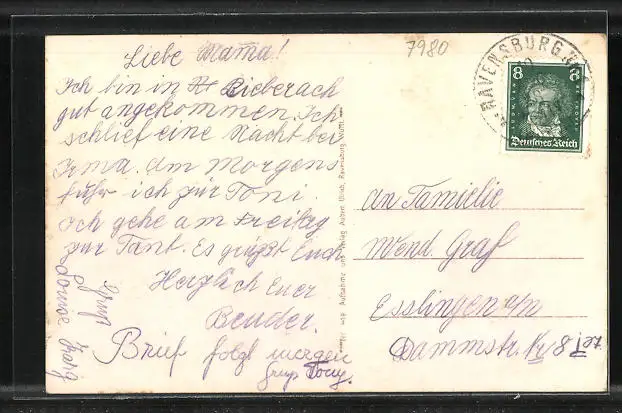 Liebe Mama!
Ich bin in Bieberach
gut angekommen. Ich
schlief eine Nacht bei
Irma. Am Morgens
fuhr ich zur Toni
Ich gehe am Freitag
zur Tant. Es grüßt Euch
Herzlich Euer
Bender.
Brief folgt morgen
Grup Tony.
Gruß
7980
RAVENSBURG
8 8
Deutsches Reich
Aufnahme und Verlag Ravensburg Württ.
an Familie
Wend. Graf
Esslingen a/n
Dammstr. Nr 8